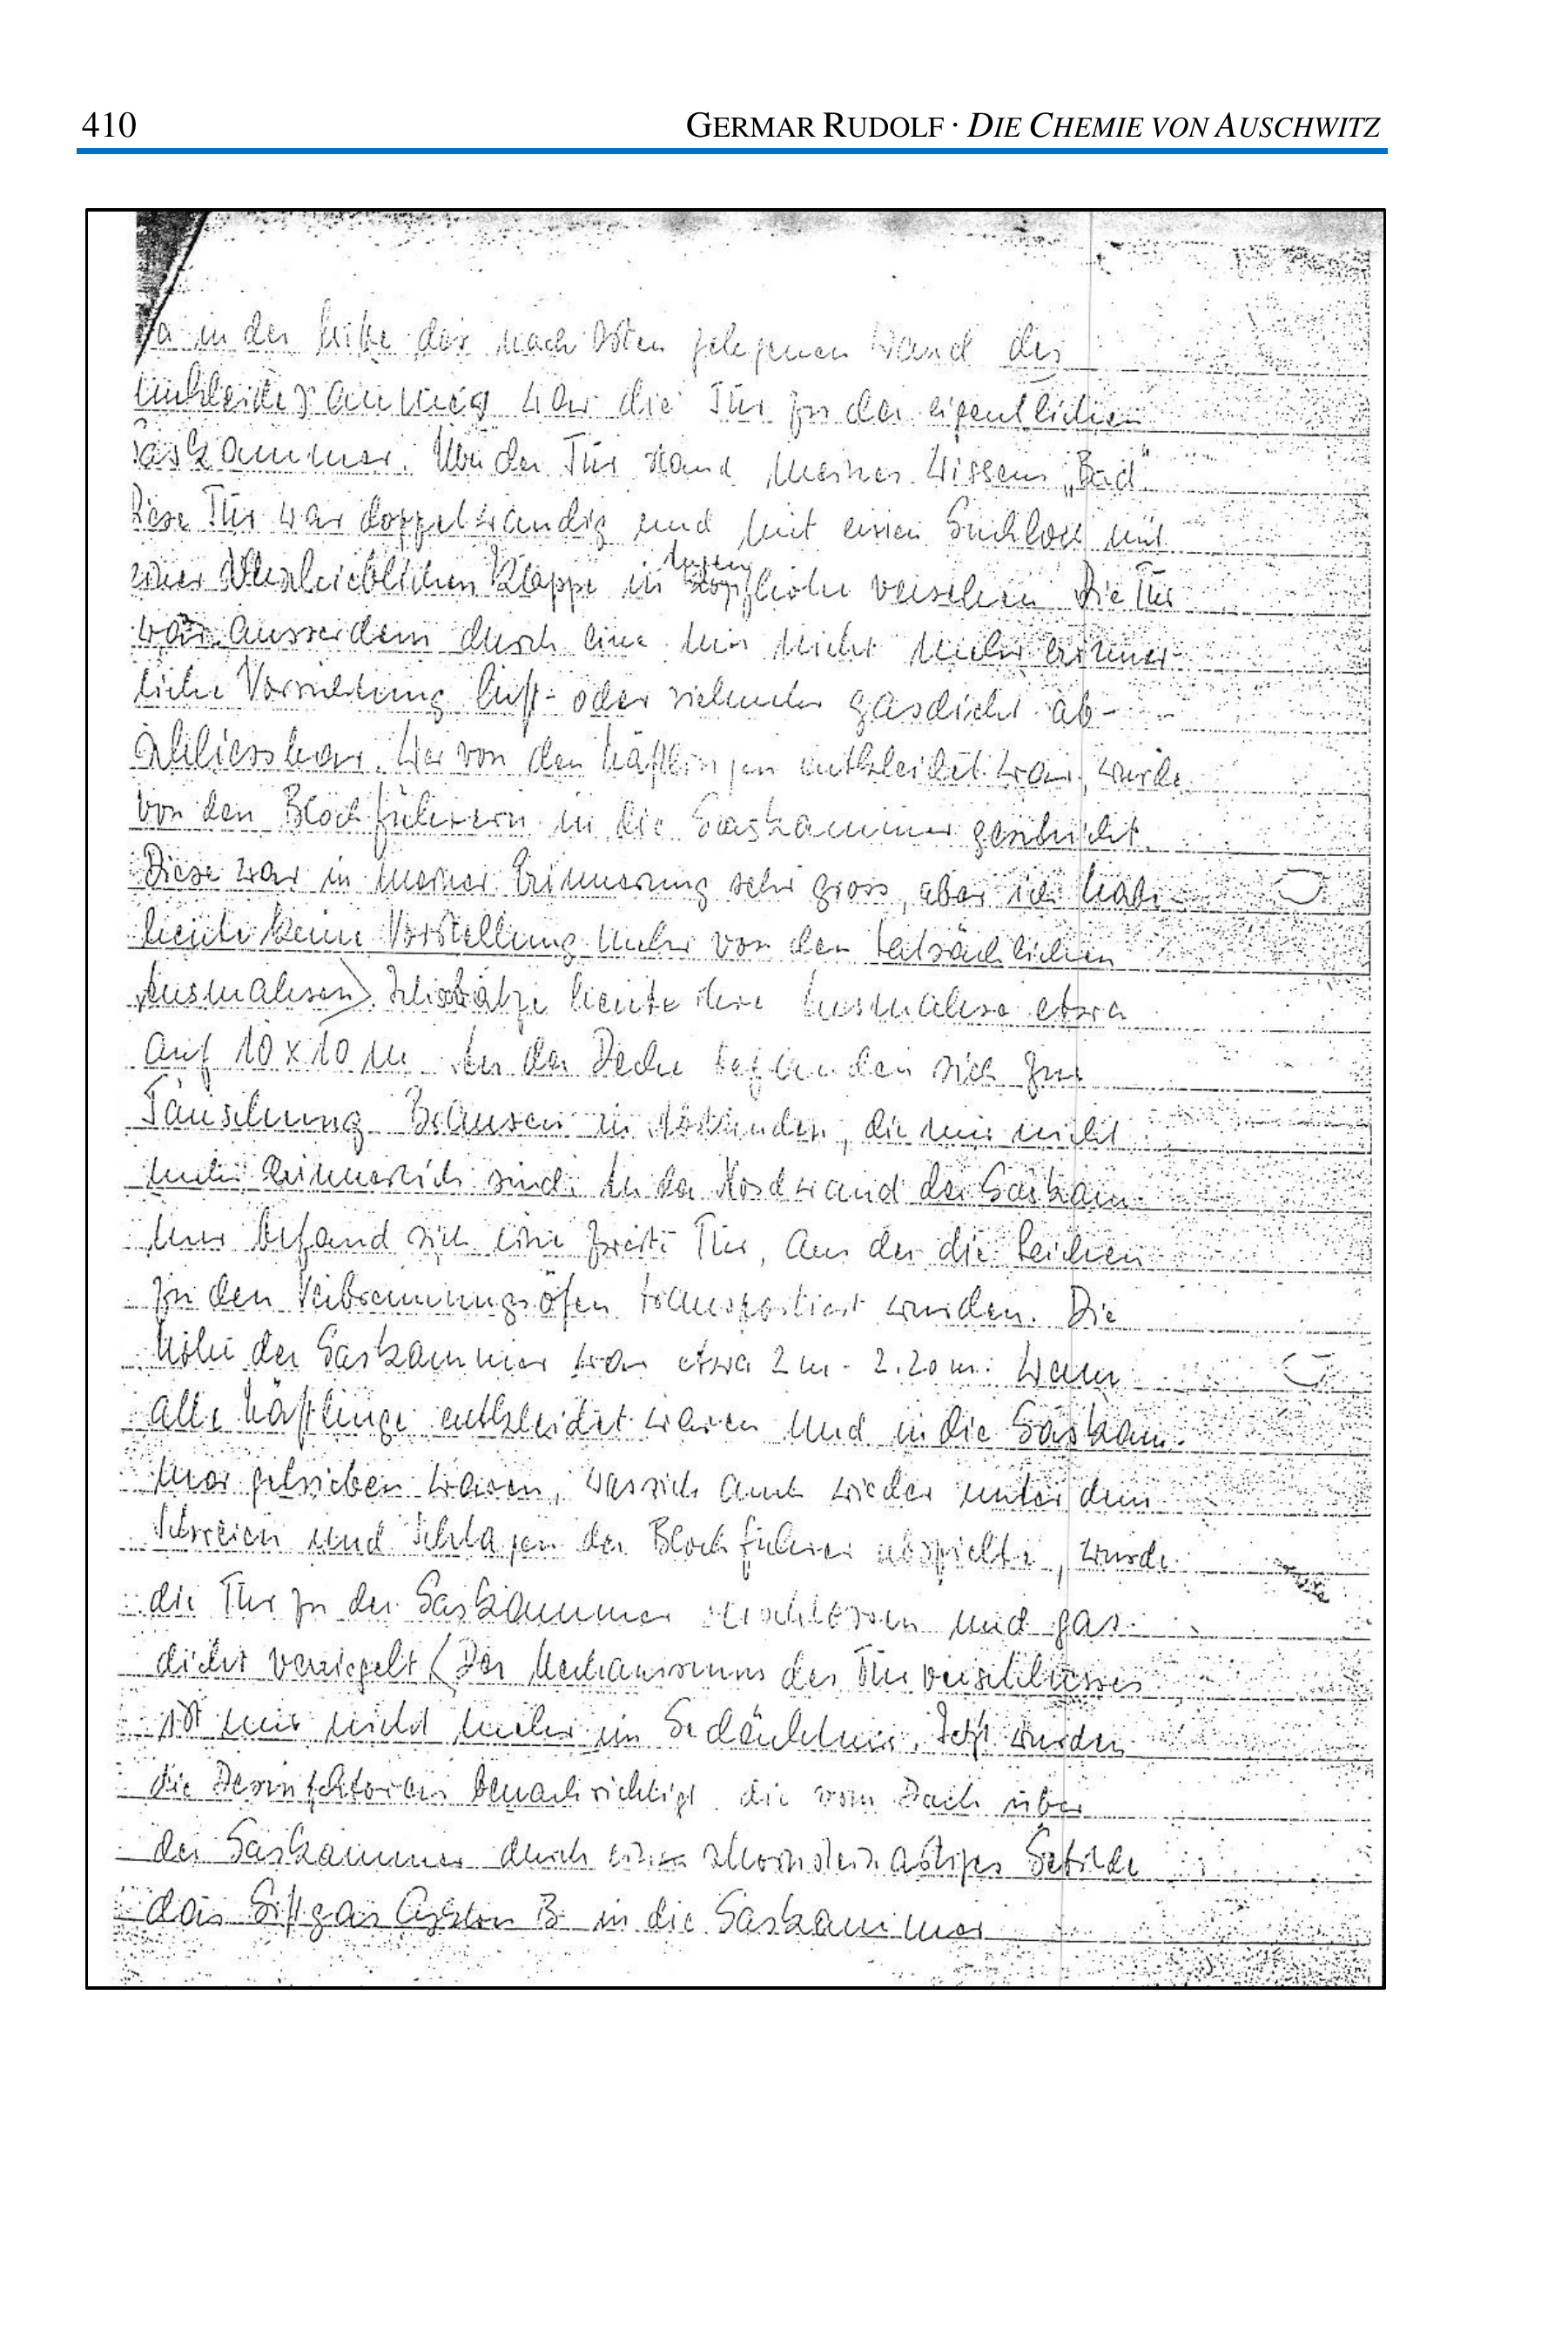 410 GERMAR RUDOLF · DIE CHEMIE VON AUSCHWITZ
in der Mitte der nach Osten gelegenen Wand des
Umkleideraumes war die Tür zu der eigentlichen
Gaskammer. Über der Tür stand meines Wissens „Bad“
Diese Tür war doppelwandig und mit einen Guckloch mit
einer Klappe in Augenhöhe versehen Die Tür
war ausserdem durch eine mir nicht mehr erinner-
liche Vorrichtung luft- oder vielmehr gasdicht ab-
schliessbar. Wer von den Häftlingen entkleidet war, wurde
von den Blockführern in die Gaskammer geschickt.
Diese war in meiner Erinnerung sehr gross, aber ich habe
heute keine Vorstellung mehr von den tatsächlichen
Ausmahsen). Ich schätze heute ihre Ausmahse etwa
auf 10 x 10 m. An der Decke befanden sich zur
Täuschung Brausen in Abständen, die mir nicht
mehr erinnerlich sind. An der Nordwand der Gaskam-
mer befand sich eine zweite Tür, aus der die Leichen
zu den Verbrennungsöfen transportiert wurden. Die
Höhe der Gaskammer war etwa 2 m - 2.20 m. Wenn
alle Häftlinge entkleidet waren und in die Gaskam-
mer getrieben waren, was sich auch wieder unter dem
Schreien und Schlagen der Blockführer abspielte, wurde
die Tür zu der Gaskammer verschlossen und gas-
dicht verriegelt (Der Mechanismus des Türverschlusses
ist mir nicht mehr im Gedächtnis. Jetzt wurden
die Desinfektoren benachrichtigt, die vom Dach über
der Gaskammer durch einen schornsteinartiges Gebilde
das Giftgas Cyklon B in die Gaskammer